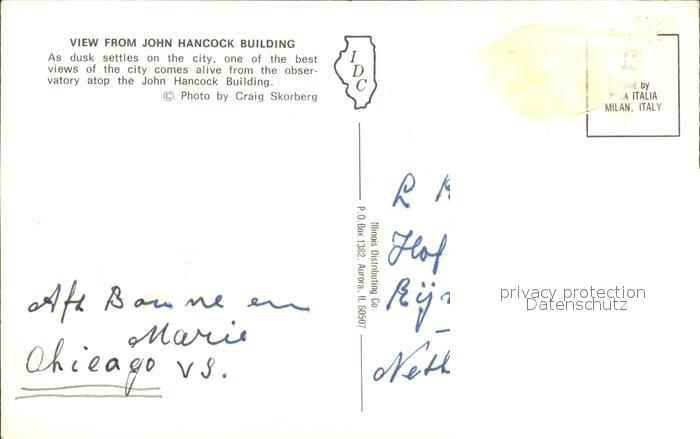 VIEW FROM JOHN HANCOCK BUILDING
As dusk settles on the city, one of the best
views of the city comes alive from the obser-
vatory atop the John Hancock Building.
© Photo by Craig Skorberg
IDC
by
ITALIA
MILAN, ITALY
Illinois Distributing Co.
P.O. Box 1382, Aurora, IL 60507
Hof
Rij
Neth
privacy protection
Datenschutz
en
Marie
Chicago VS.